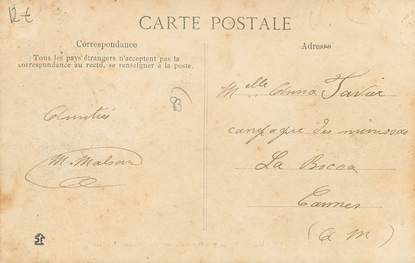 CARTE POSTALE
Correspondance
Tous les pays étrangers n'acceptent pas la
correspondance au recto, se renseigner à la poste.
Adresse
Amitiés
83
Melle Anna
campagne des mimosas
La Bocca
Cannes
(A M)